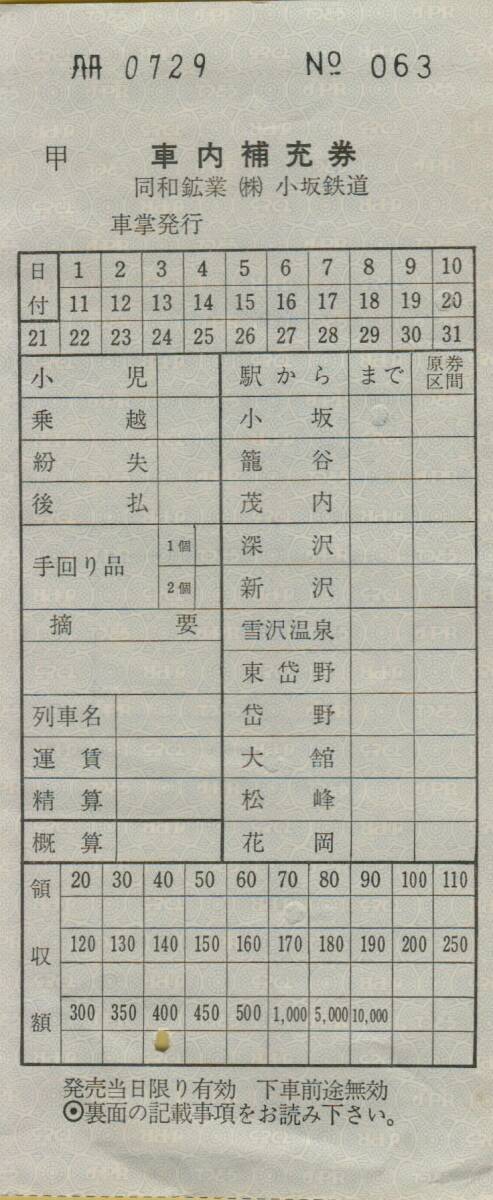 冊 0729 No 063
甲 車内補充券
同和鉱業 ㈱ 小坂鉄道
車掌発行
日付 1 2 3 4 5 6 7 8 9 10
11 12 13 14 15 16 17 18 19 20
21 22 23 24 25 26 27 28 29 30 31
小児 駅から まで 原券区間
乗越 小坂
紛失 籠谷
後払 茂内
手回り品 1個 深沢
2個 新沢
摘要 雪沢温泉
東岱野
列車名 岱野
運賃 大館
精算 松峰
概算 花岡
領収額 20 30 40 50 60 70 80 90 100 110
120 130 140 150 160 170 180 190 200 250
300 350 400 450 500 1,000 5,000 10,000
発売当日限り有効 下車前途無効
◉裏面の記載事項をお読み下さい。